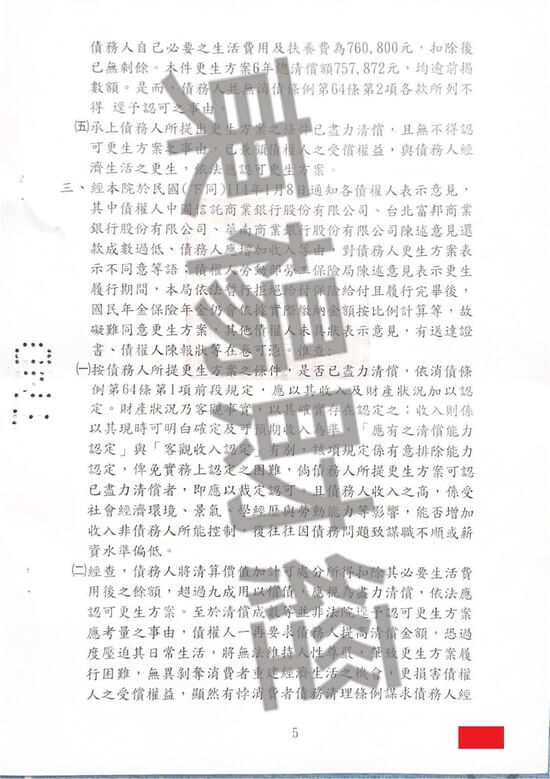 債務人自己必要之生活費用及扶養費為760,800元，扣除後
已無剩餘。本件更生方案6年總清償額757,872元，均逾前揭
數額。是而，債務人並無消債條例第64條第2項各款所列不
得 逕予認可之事由。
㈤承上債務人所提出更生方案之條件已盡力清償，且無不得認
可更生方案之事由，已兼顧債權人之受償權益，與債務人經
濟生活之更生，依法應認可更生方案。
三、經本院於民國(下同)114年1月8日通知各債權人表示意見，
其中債權人中國信託商業銀行股份有限公司、台北富邦商業
銀行股份有限公司、華南商業銀行股份有限公司陳述意見還
款成數過低、債務人應增加收入等由，對債務人更生方案表
示不同意等語；債權人勞動部勞工保險局陳述意見表示更生
履行期間，本局依法暫行拒絕給付保險給付且履行完畢後，
國民年金保險年金仍會依據實際繳納金額按比例計算等，故
礙難同意更生方案，其他債權人未具狀表示意見，有送達證
書、債權人陳報狀等在卷可憑。惟查：
㈠按債務人所提更生方案之條件，是否已盡力清償，依消債條
例第64條第1項前段規定，應以其收入及財產狀況加以認
定。財產狀況乃客觀事實，以其確實存在認定之；收入則係
以其現時可明白確定及可預期收入為準，「應有之清償能力
認定」與「客觀收入認定」有別，該項規定係有意排除能力
認定，俾免實務上認定之困難，倘債務人所提更生方案可認
已盡力清償者，即應以裁定認可。且債務人收入之高，係受
社會經濟環境、景氣、學經歷與勞動能力等影響，能否增加
收入非債務人所能控制，復往往因債務問題致謀職不順或薪
資水準偏低。
㈡經查，債務人將清算價值加計可處分所得扣除其必要生活費
用後之餘額，超過九成用以償債，應視為盡力清償，依法應
認可更生方案。至於清償成數等並非法院逕予認可更生方案
應考量之事由，債權人一再要求債務人提高清償金額，恐過
度壓迫其日常生活，將無法維持人性尊嚴，肇致更生方案履
行困難，無異剝奪消費者重建經濟生活之機會，更損害債權
人之受償權益，顯然有悖消費者債務清理條例謀求債務人經
5